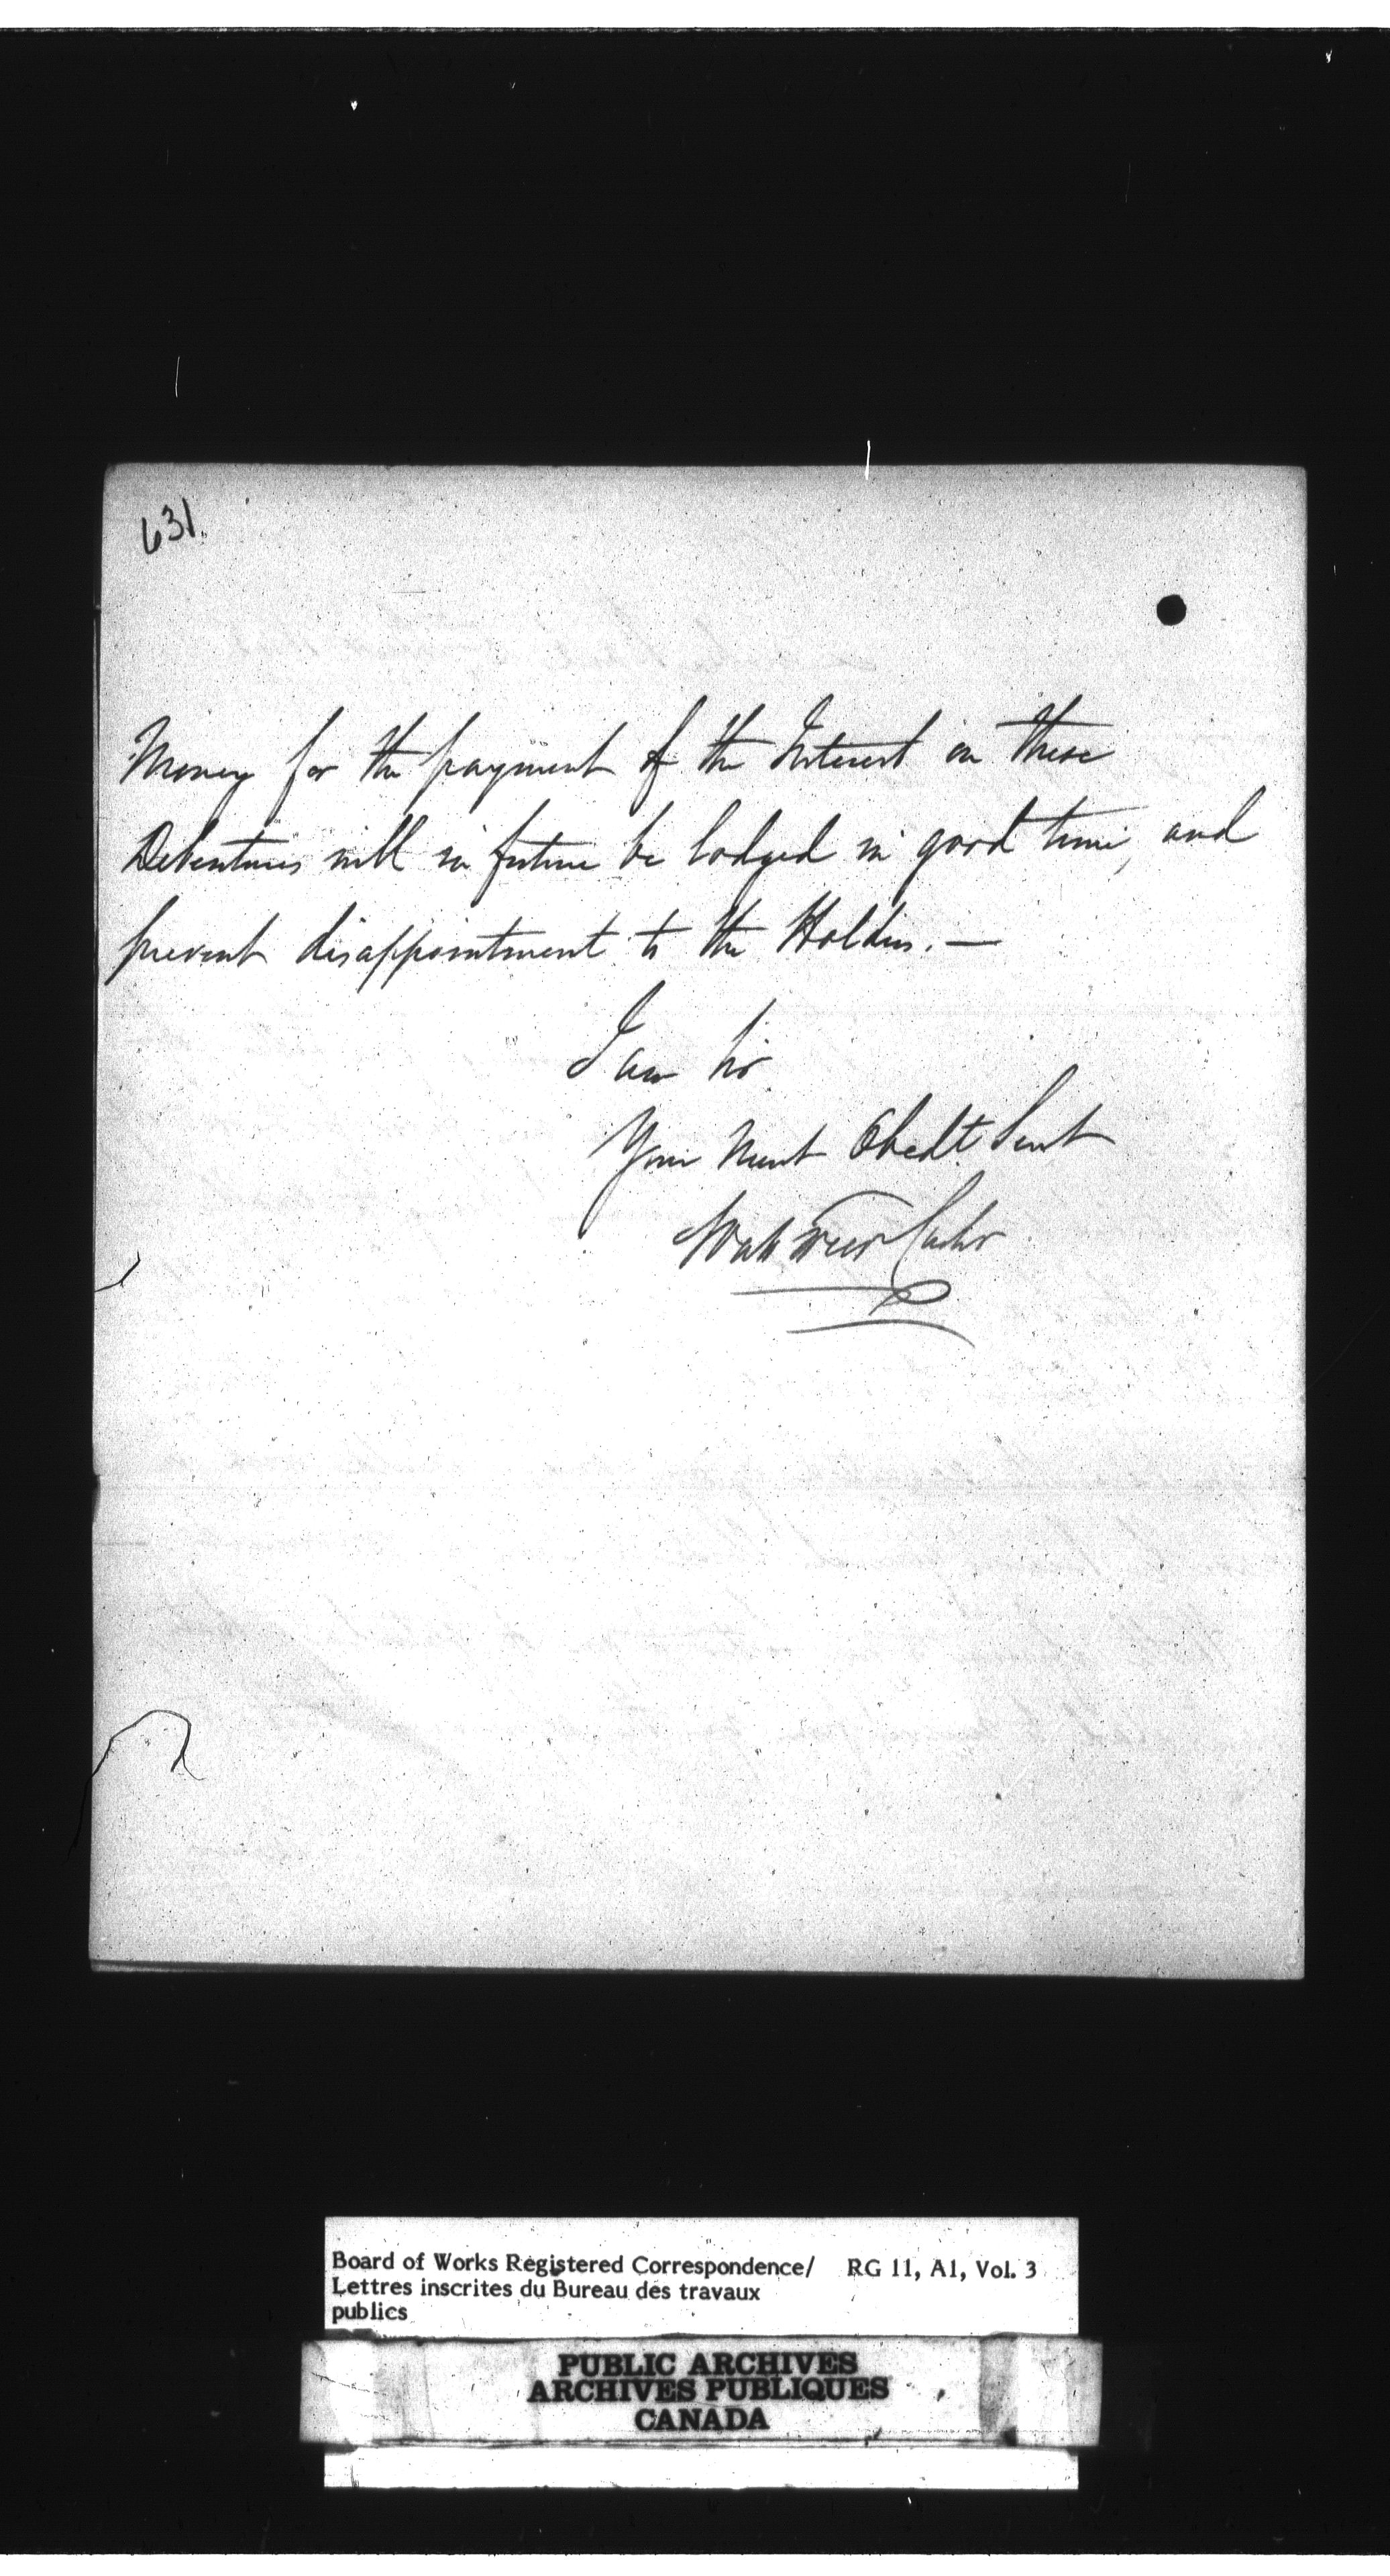 631.
Money for the payment of the Interest on these
Debentures will in future be lodged in good time, and
prevent disappointment to the Holders. —
I am Sir
Your Most Obedt Servt
Cashr
Board of Works Registered Correspondence/ RG 11, A1, Vol. 3
Lettres inscrites du Bureau des travaux
publics
PUBLIC ARCHIVES
ARCHIVES PUBLIQUES
CANADA